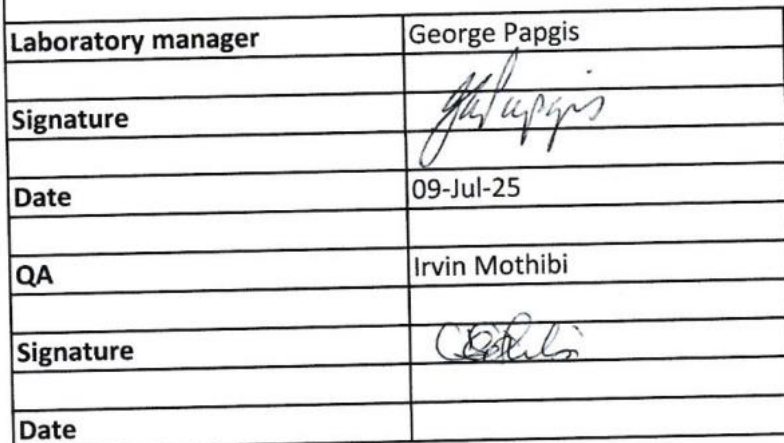 Laboratory manager George Papgis
Signature
Date 09-Jul-25
QA Irvin Mothibi
Signature
Date